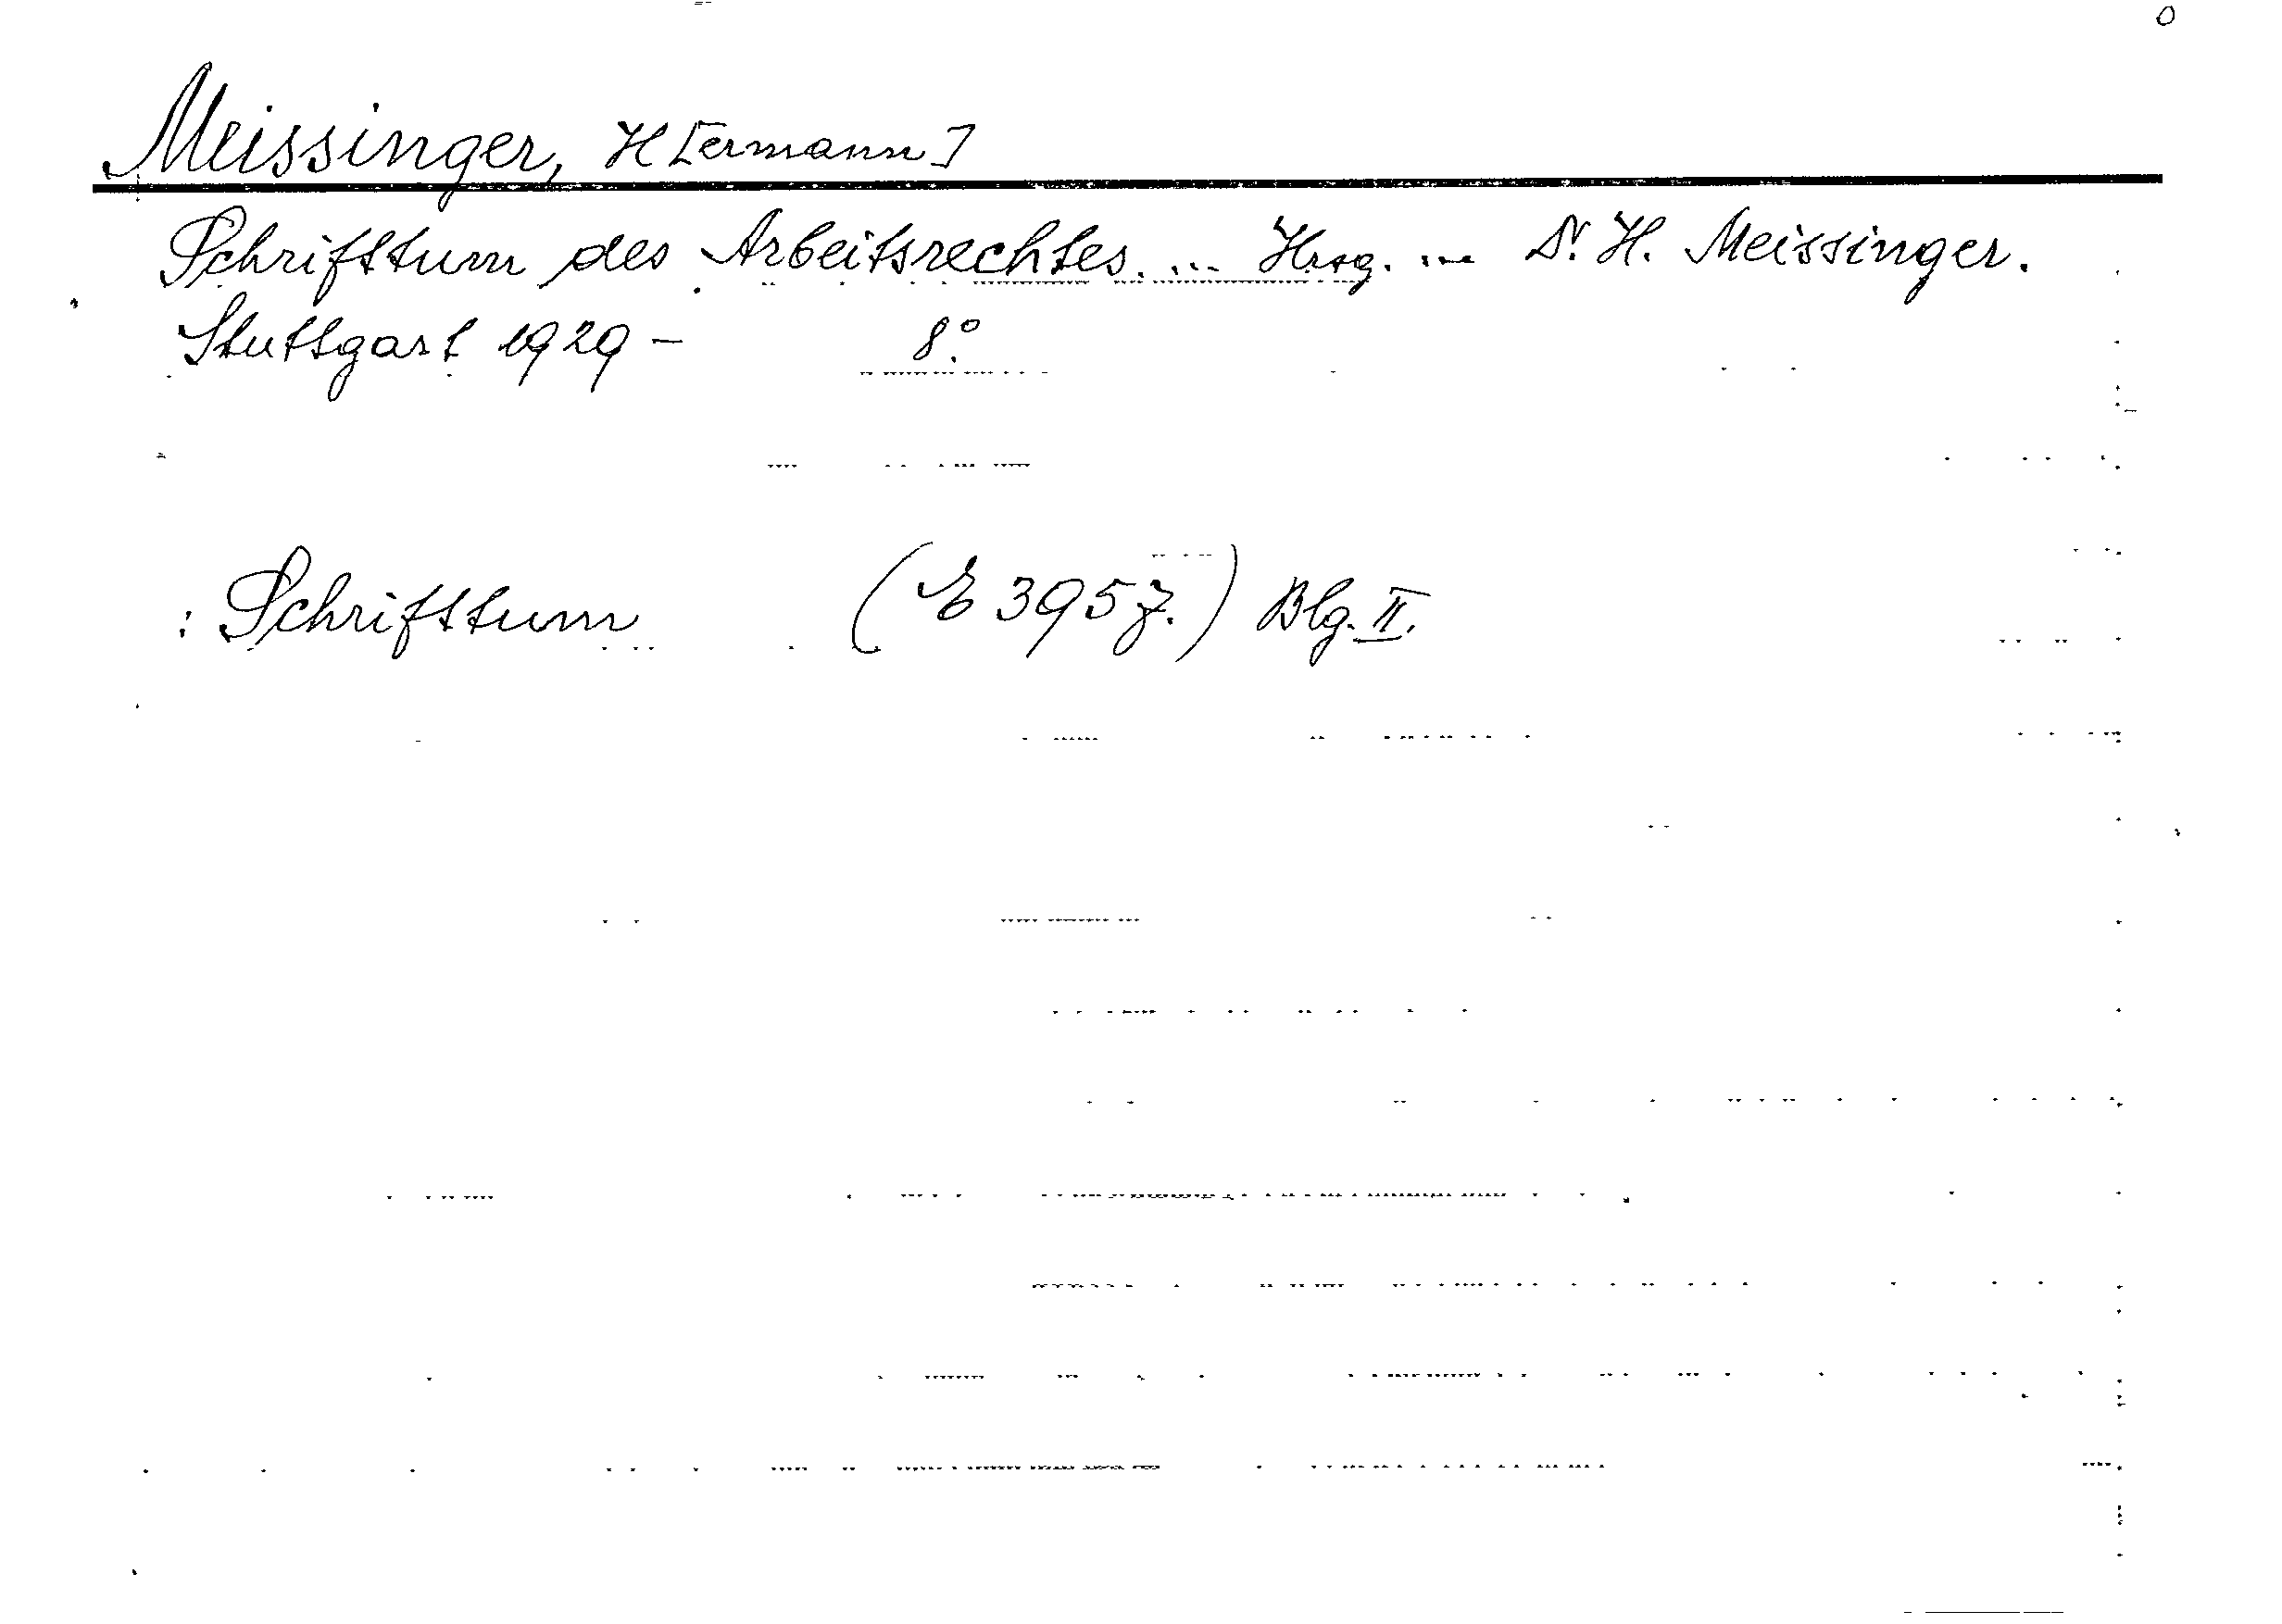 Meissinger, H[ermann]
Schrifttum des Arbeitsrechtes. ... Hrsg. ... Dr. H. Meissinger.
Stuttgart 1929 - 8°.
: Schrifttum (E 3957.) Blg. II.